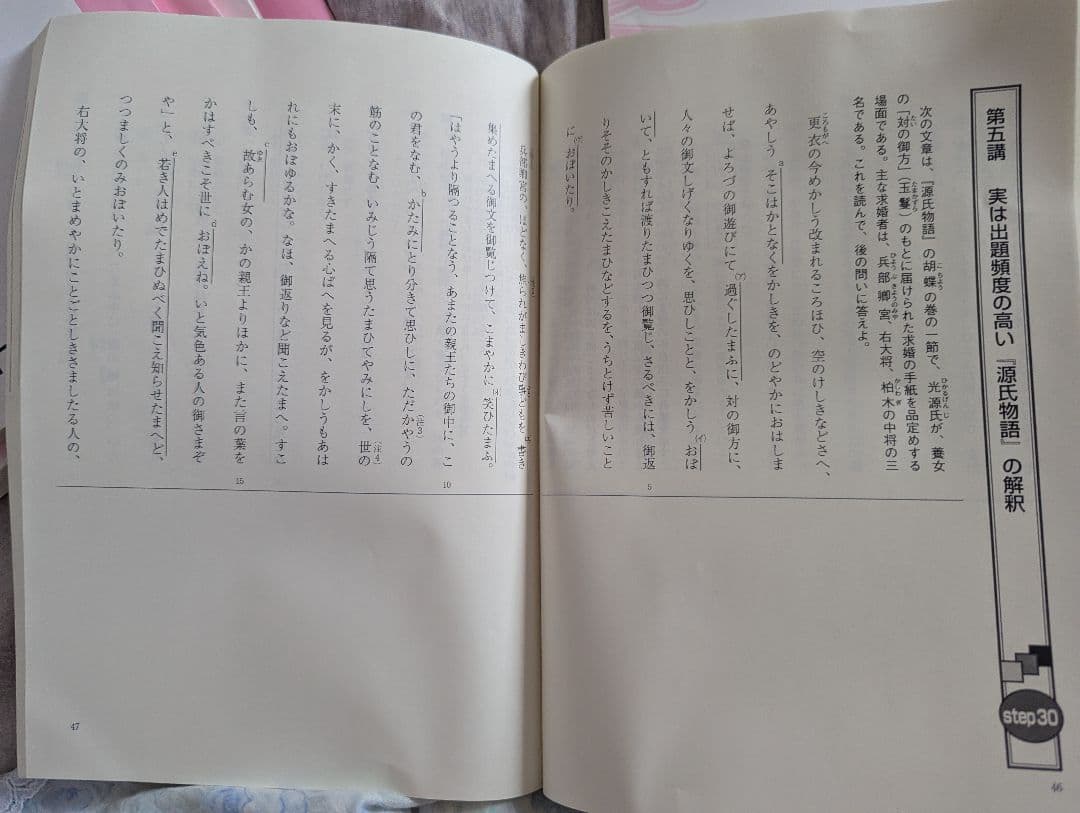 第五講 実は出題頻度の高い『源氏物語』の解釈
step30
次の文章は、『源氏物語』の胡蝶の巻の一節で、光源氏が、養女
の「対の御方」(玉鬘)のもとに届けられた求婚の手紙を品定めする
場面である。主な求婚者は、兵部卿宮、右大将、柏木の中将の三
名である。これを読んで、後の問いに答えよ。
更衣の今めかしう改まれるころほひ、空のけしきなどさへ、
あやしうaそこはかとなくをかしきを、のどやかにおはしま
せば、よろづの御遊びにて(ア)過ぐしたまふに、対の御方に、
人々の御文しげくなりゆくを、思ひしことと、をかしう(イ)おぼ
いて、ともすれば渡りたまひつつ御覧じ、さるべきには、御返
りそそのかしきこえたまひなどするを、うちとけず苦しいこと
に(ウ)おぼいたり。
5
46
兵部卿宮の、ほどなく
集めたまへる御文を御覧じつけて、こまやかに(エ)笑ひたまふ。
「はやうより隔つることなう、あまたの親王たちの御中に、こ
の君をなむ、bかたみにとり分きて思ひしに、ただかやうの
筋のことなむ、いみじう隔て思うたまひてやみにしを、世の
末に、かく、すきたまへる心ばへを見るが、をかしうもあは
れにもおぼゆるかな。なほ、御返りなど聞こえたまへ。すこ
しも、c故あらむ女の、かの親王よりほかに、また言の葉を
かはすべきこそ世にdおぼえね。いと気色ある人の御さまぞ
や」と、e若き人はめでたまひぬべく聞こえ知らせたまへど、
つつましくのみおぼいたり。
右大将の、いとまめやかにことごとしきさましたる人の、
(注3)
(注4)
10
15
47